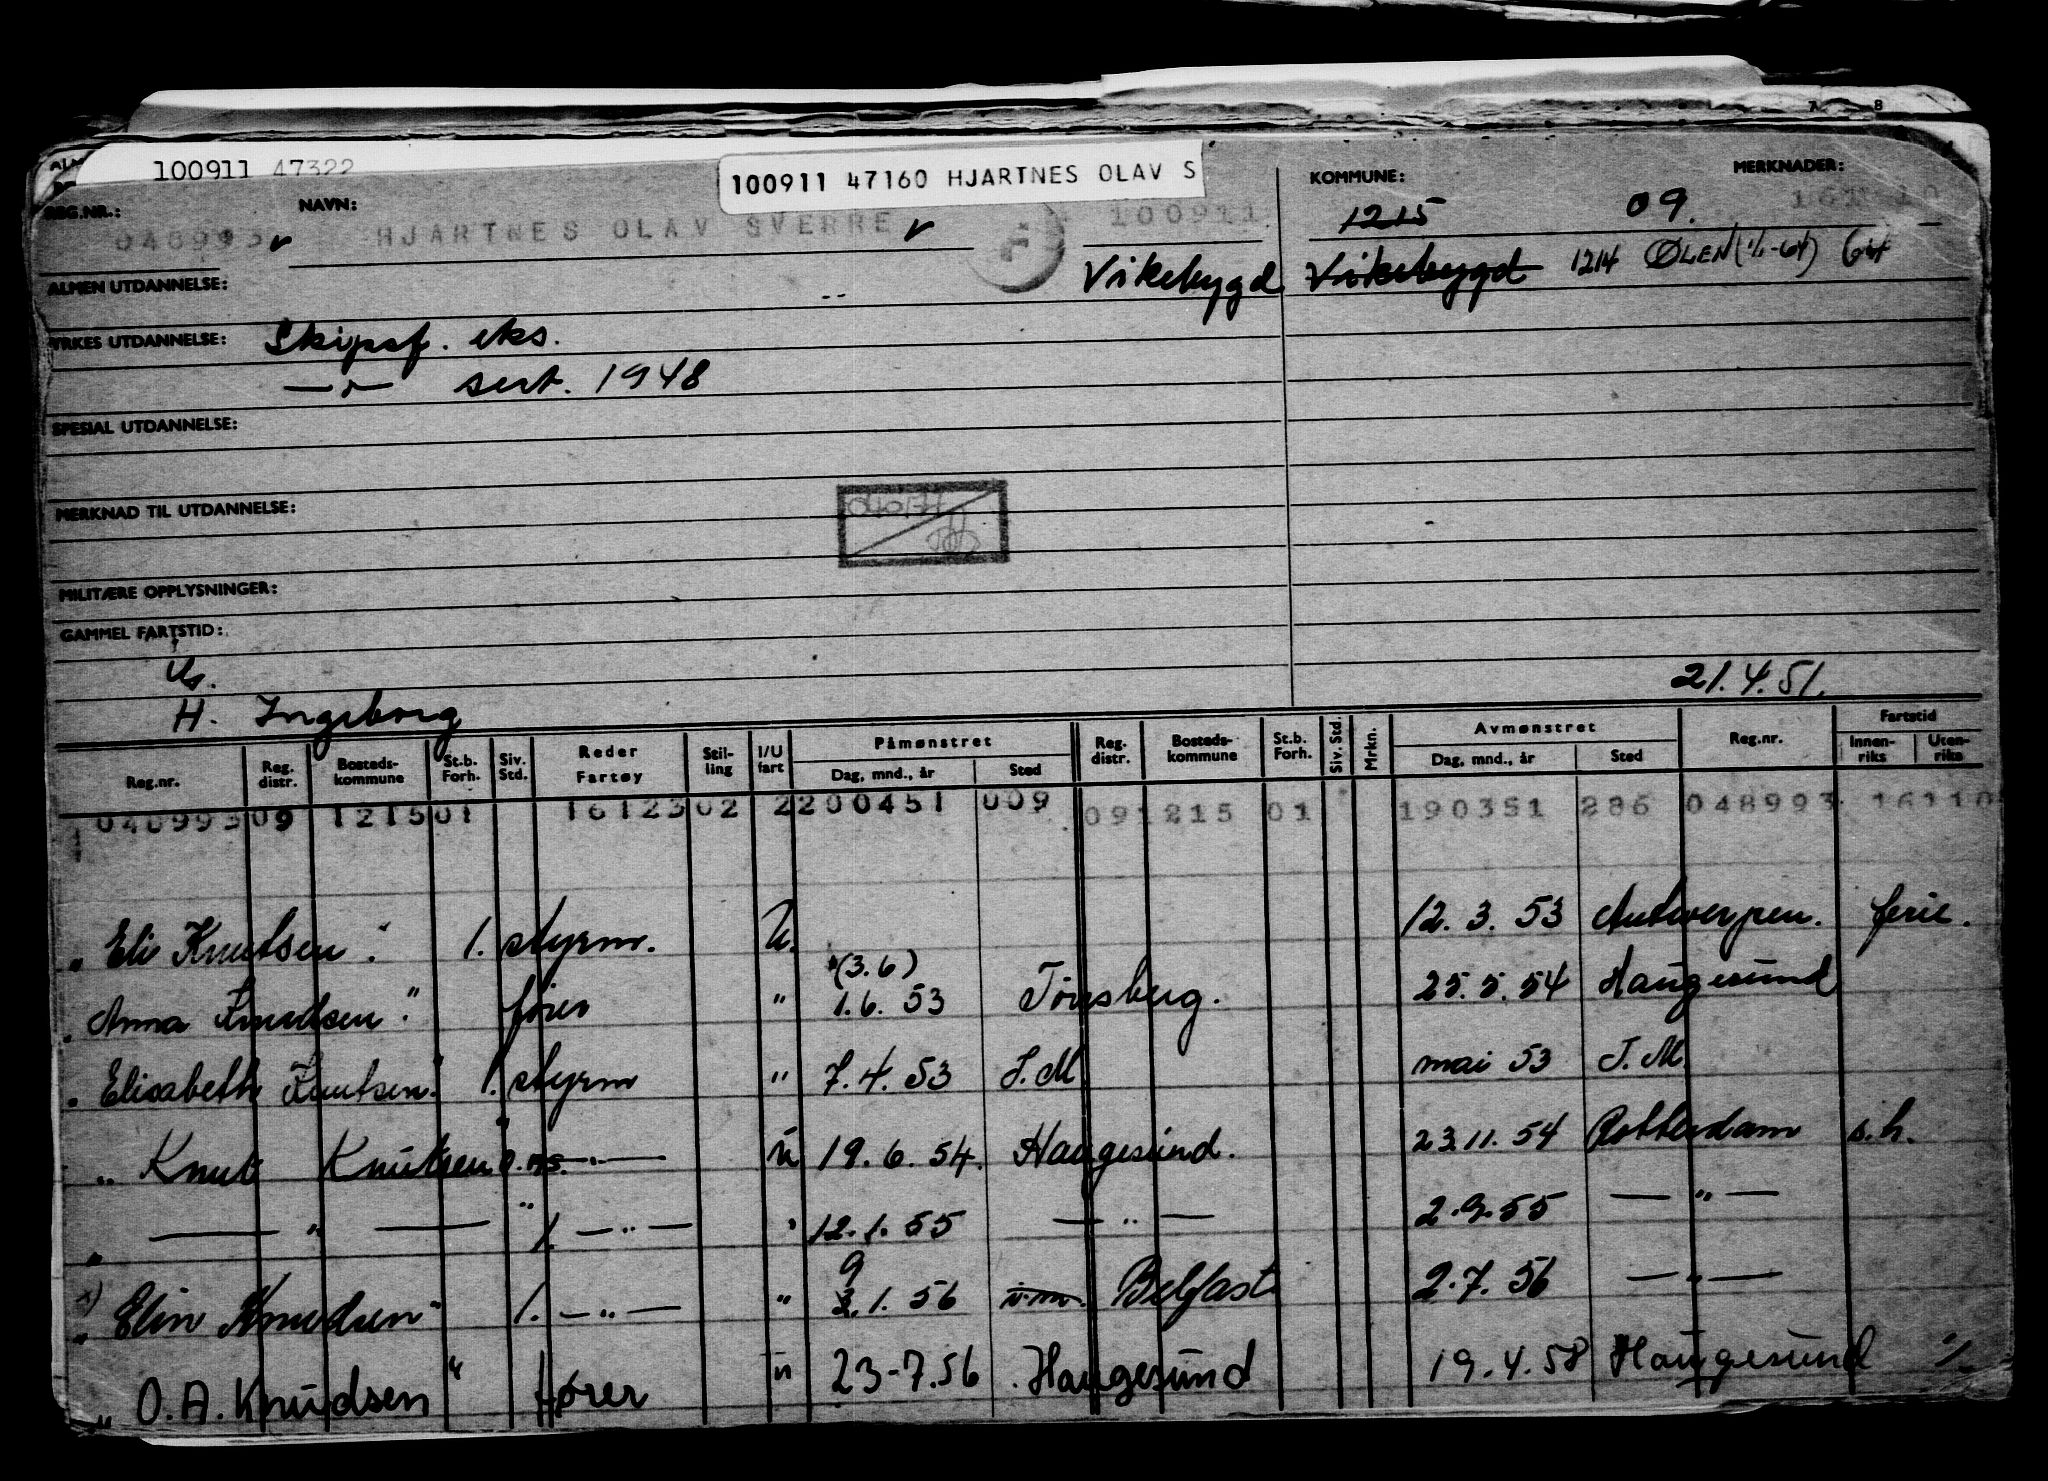 7 8
100911 47322
100911 47160 HJARTNES OLAV S
REG.NR.: NAVN: KOMMUNE: MERKNADER:
048993 HJARTNES OLAV SVERRE 100911 1215 09.
ALMEN UTDANNELSE: Vikebygd Vikebygd 1214 ØLEN (1/1-64) 64
YRKES UTDANNELSE: Skipsf. eks.
—"— sert. 1948
SPESIAL UTDANNELSE:
MERKNAD TIL UTDANNELSE:
MILITÆRE OPPLYSNINGER:
GAMMEL FARTSTID:
21.4.51.
H. Ingeborg
Reg.nr. Reg. distr. Bosteds-kommune St.b. Forh. Siv. Std. Reder Fartøy Stil-ling I/U fart Påmønstret Dag, mnd., år Sted Reg. distr. Bosteds-kommune St.b. Forh. Siv. Std. Mrkn. Avmønstret Dag, mnd., år Sted Reg.nr. Fartstid Innen-riks Uten-riks
048993 09 1215 01 16123 02 2 200451 009 09 1215 01 190351 286 048993 16110
" Eli Knutsen" 1. styrm. U. 12.3.53 Antwerpen. ferie.
(3.6)
" Anna Knudsen" fører " 1.6.53 Tönsberg. 25.5.54 Haugesund
" Elisabeth Knutsen" 1. styrm " 7.4.53 I.M mai 53 I.M.
" Knut Knutsen o.as." —"— u 19.6.54. Haugesund. 23.11.54 Rotterdam s.h.
" —"— " 1. —"— " 12.1.55 —"— 2.9.55 —"—
9
x) " Elin Knudsen" 1. —"— " 2.1.56 u.m. Belfast 2.7.56 —"—
" O.A. Knudsen" fører u 23-7.56 Haugesund 19.4.58 Haugesund